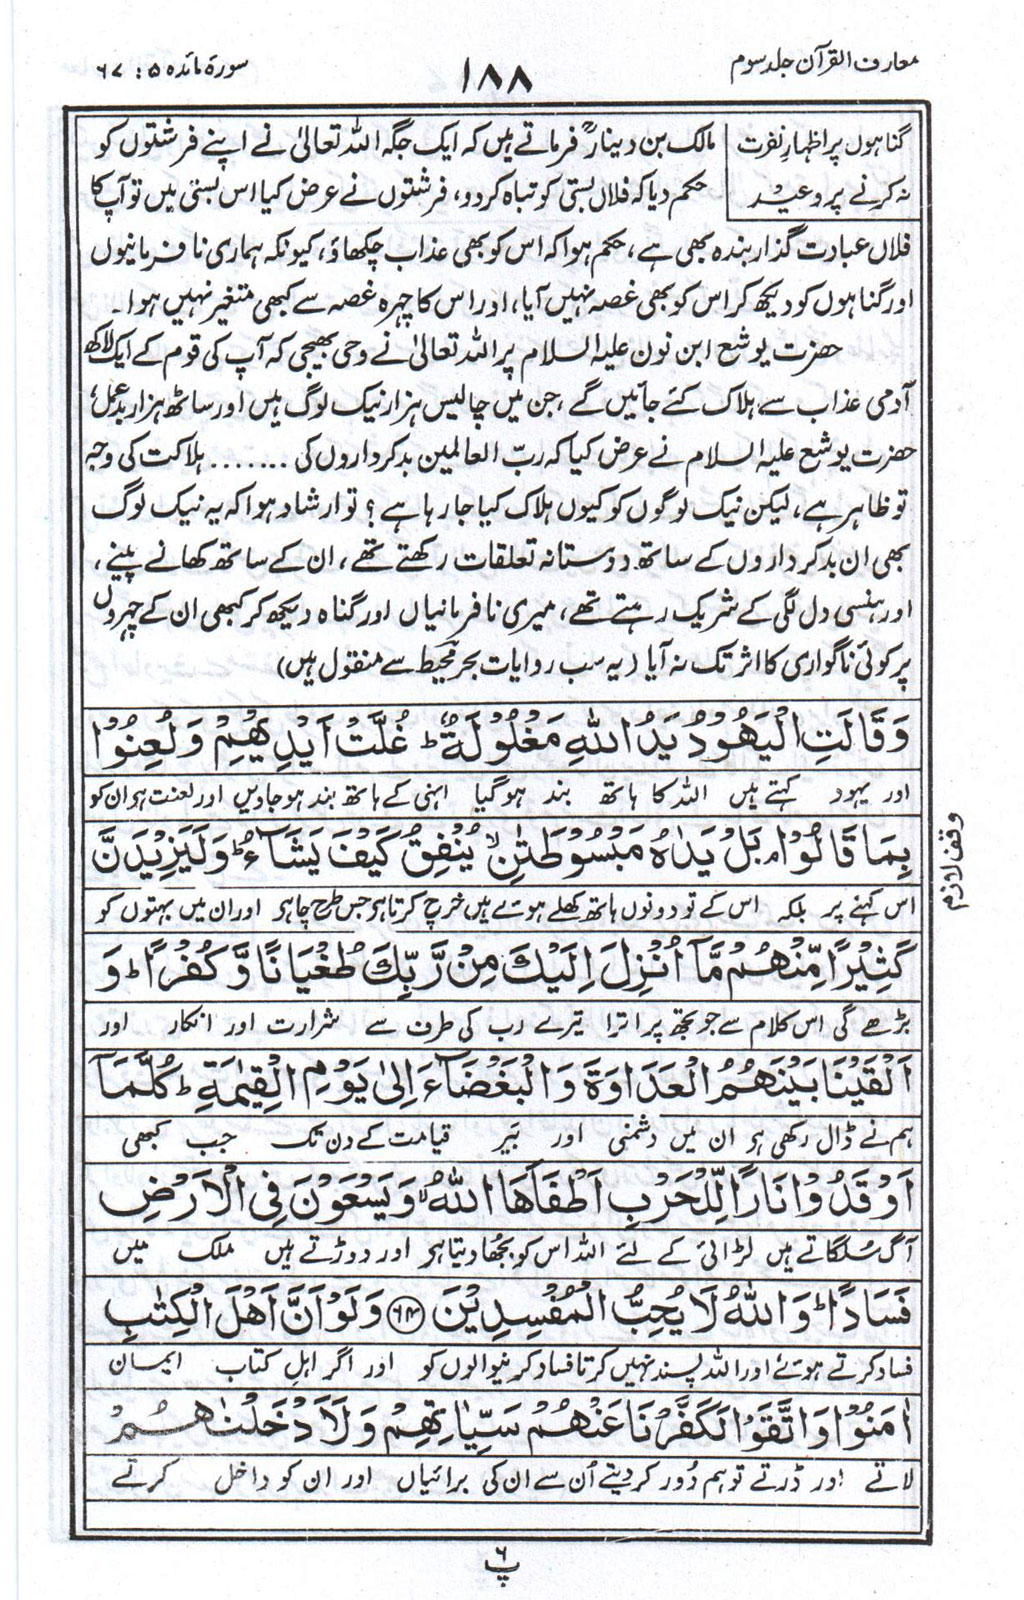 معارف القرآن جلد سوم
۱۸۸
سورۃ مائدہ ۵ : ۶۷
گناہوں پر اظہارِ نفرت
نہ کرنے پر وعید
مالک بن دینارؒ فرماتے ہیں کہ ایک جگہ اللہ تعالیٰ نے اپنے فرشتوں کو
حکم دیا کہ فلاں بستی کو تباہ کر دو، فرشتوں نے عرض کیا اس بستی میں تو آپ کا
فلاں عبادت گذار بندہ بھی ہے، حکم ہوا کہ اس کو بھی عذاب چکھاؤ، کیونکہ ہماری نافرمانیوں
اور گناہوں کو دیکھ کر اس کو بھی غصہ نہیں آیا، اور اس کا چہرہ غصہ سے کبھی متغیر نہیں ہوا۔
حضرت یوشع ابن نون علیہ السلام پر اللہ تعالیٰ نے وحی بھیجی کہ آپ کی قوم کے ایک لاکھ
آدمی عذاب سے ہلاک کئے جائیں گے، جن میں چالیس ہزار نیک لوگ ہیں اور ساٹھ ہزار بدعمل،
حضرت یوشع علیہ السلام نے عرض کیا کہ ربّ العالمین بدکرداروں کی ....... ہلاکت کی وجہ
تو ظاہر ہے، لیکن نیک لوگوں کو کیوں ہلاک کیا جارہا ہے؟ تو ارشاد ہوا کہ یہ نیک لوگ
بھی ان بدکرداروں کے ساتھ دوستانہ تعلقات رکھتے تھے، ان کے ساتھ کھانے پینے،
اور ہنسی دل لگی کے شریک رہتے تھے، میری نافرمانیاں اور گناہ دیکھ کر کبھی ان کے چہروں
پر کوئی ناگواری کا اثر تک نہ آیا (یہ سب روایات بحر محیط سے منقول ہیں)
وَقَالَتِ الْيَهُوْدُ يَدُ اللّٰهِ مَغْلُوْلَةٌ ؕ غُلَّتْ اَيْدِيْهِمْ وَلُعِنُوْا
اور یہود کہتے ہیں اللہ کا ہاتھ بند ہو گیا انہی کے ہاتھ بند ہو جاویں اور لعنت ہو ان کو
بِمَا قَالُوْا ۘ بَلْ يَدٰهُ مَبْسُوْطَتٰنِ ۙ يُنْفِقُ كَيْفَ يَشَآءُ ؕ وَلَيَزِيْدَنَّ
وقف لازم
اس کہنے پر بلکہ اس کے تو دونوں ہاتھ کھلے ہوئے ہیں خرچ کرتا ہے جس طرح چاہے اور ان میں بہتوں کو
كَثِيْرًا مِّنْهُمْ مَّآ اُنْزِلَ اِلَيْكَ مِنْ رَّبِّكَ طُغْيَانًا وَّكُفْرًا ؕ وَ
بڑھے گی اس کلام سے جو تجھ پر اترا تیرے رب کی طرف سے شرارت اور انکار اور
اَلْقَيْنَا بَيْنَهُمُ الْعَدَاوَةَ وَالْبَغْضَآءَ اِلٰى يَوْمِ الْقِيٰمَةِ ؕ كُلَّمَآ
ہم نے ڈال رکھی ہے ان میں دشمنی اور بَیر قیامت کے دن تک جب کبھی
اَوْقَدُوْا نَارًا لِّلْحَرْبِ اَطْفَاَهَا اللّٰهُ ۙ وَيَسْعَوْنَ فِى الْاَرْضِ
آگ سلگاتے ہیں لڑائی کے لئے اللہ اس کو بجھا دیتا ہے اور دوڑتے ہیں ملک میں
فَسَادًا ؕ وَاللّٰهُ لَا يُحِبُّ الْمُفْسِدِيْنَ ﴿۶۴﴾ وَلَوْ اَنَّ اَهْلَ الْكِتٰبِ
فساد کرتے ہوئے اور اللہ پسند نہیں کرتا فساد کرنیوالوں کو اور اگر اہلِ کتاب ایمان
اٰمَنُوْا وَاتَّقَوْا لَكَفَّرْنَا عَنْهُمْ سَيِّاٰتِهِمْ وَلَاَدْخَلْنٰهُمْ
لاتے اور ڈرتے تو ہم دُور کر دیتے اُن سے ان کی برائیاں اور ان کو داخل کرتے
پ ۶